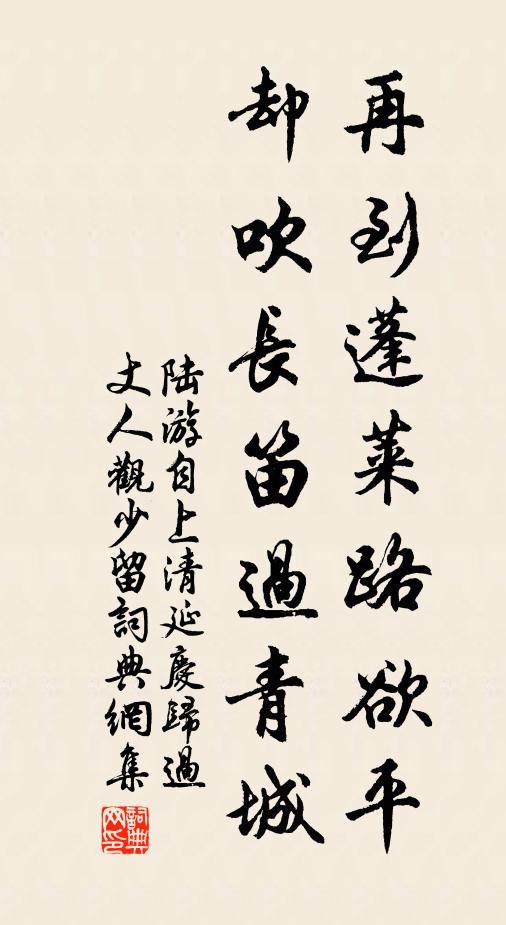 再到蓬萊路欲平
却吹長笛過青城
陆游自上清延慶歸過
丈人觀少留詞典網集
詞典
网印